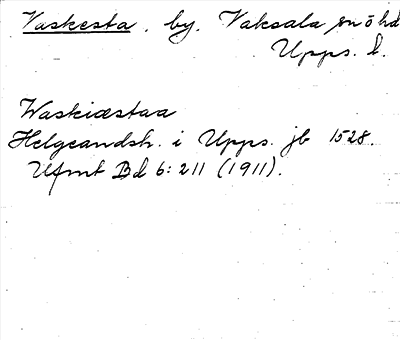 Vaskesta. by. Vaksala sn o hd
Upps. l.
Waskiæstaa
Helgeandsh. i Upps. jb 1528.
Ufmt Bd 6:211 (1911).